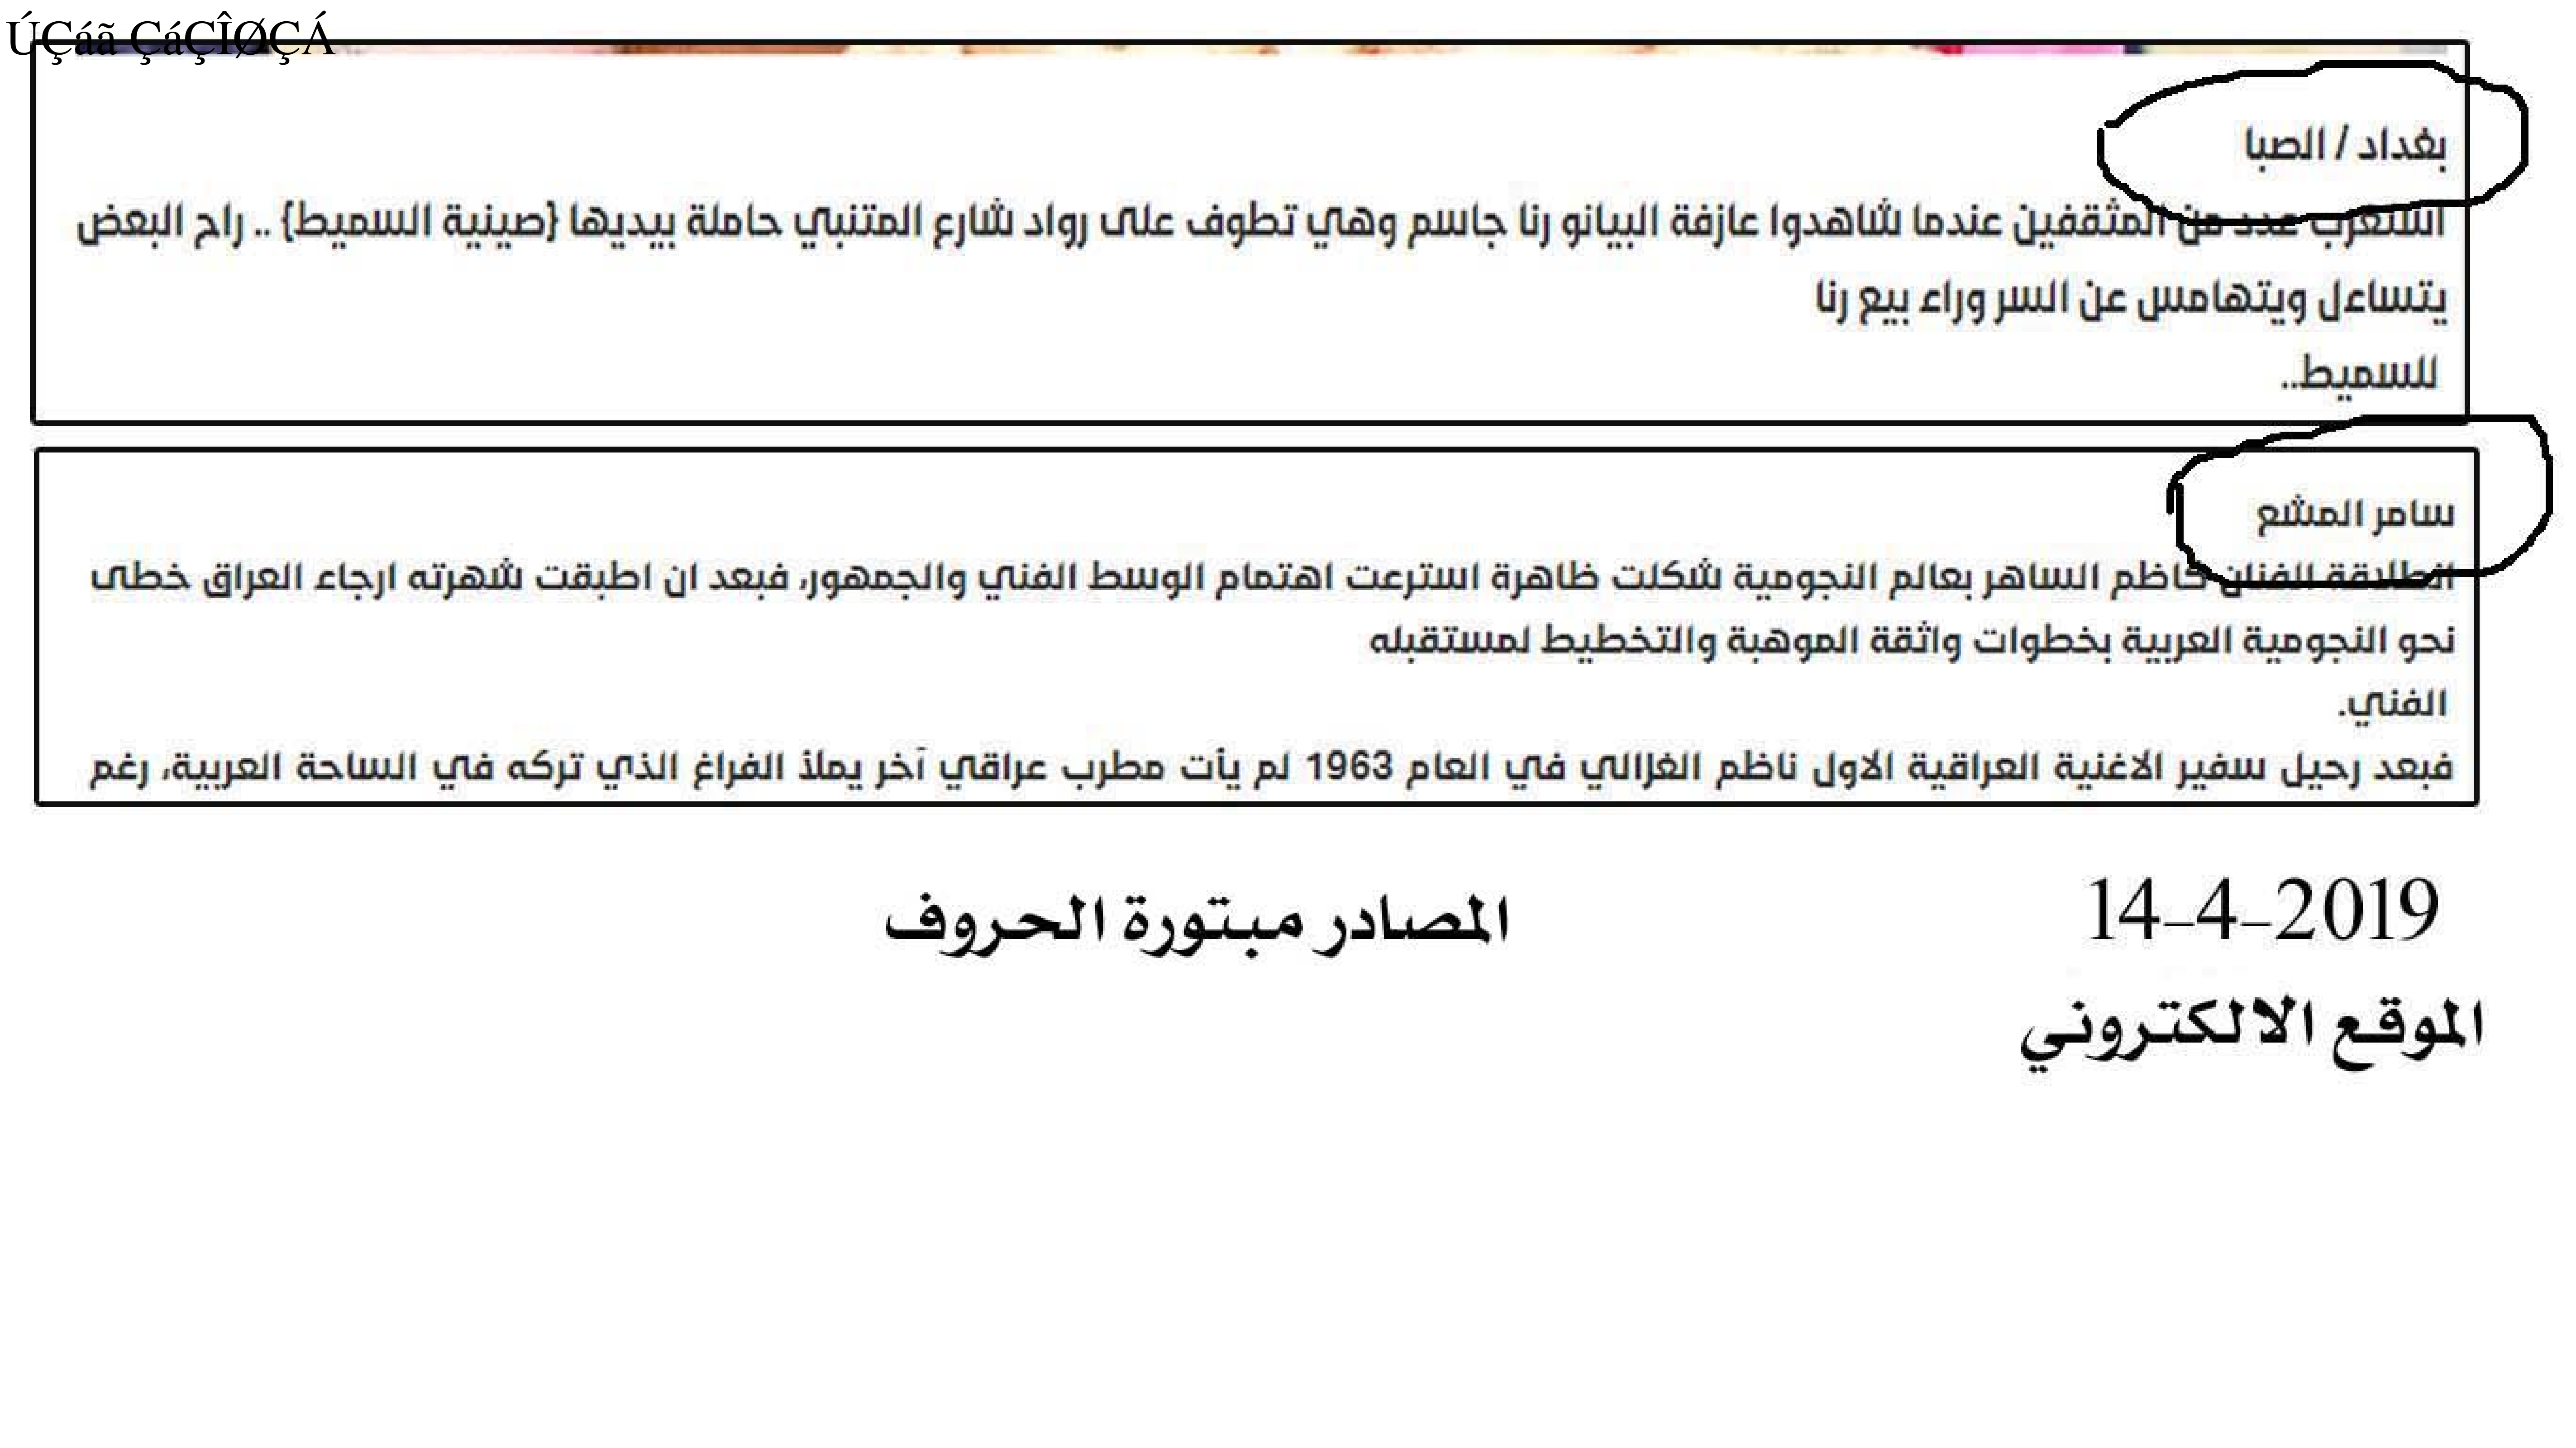 ÚÇáã ÇáÇÎØÇÁ
بغداد / الصبا
استغرب عدد من المثقفين عندما شاهدوا عازفة البيانو رنا جاسم وهي تطوف على رواد شارع المتنبي حاملة بيديها {صينية السميط} .. راح البعض
يتساءل ويتهامس عن السر وراء بيع رنا
للسميط..
سامر المشع
انطلاقة الفنان كاظم الساهر بعالم النجومية شكلت ظاهرة استرعت اهتمام الوسط الفني والجمهور، فبعد ان اطبقت شهرته ارجاء العراق خطى
نحو النجومية العربية بخطوات واثقة الموهبة والتخطيط لمستقبله
الفني.
فبعد رحيل سفير الاغنية العراقية الاول ناظم الغزالي في العام 1963 لم يأت مطرب عراقي آخر يملأ الفراغ الذي تركه في الساحة العربية، رغم
14-4-2019
المصادر مبتورة الحروف
الموقع الالكتروني